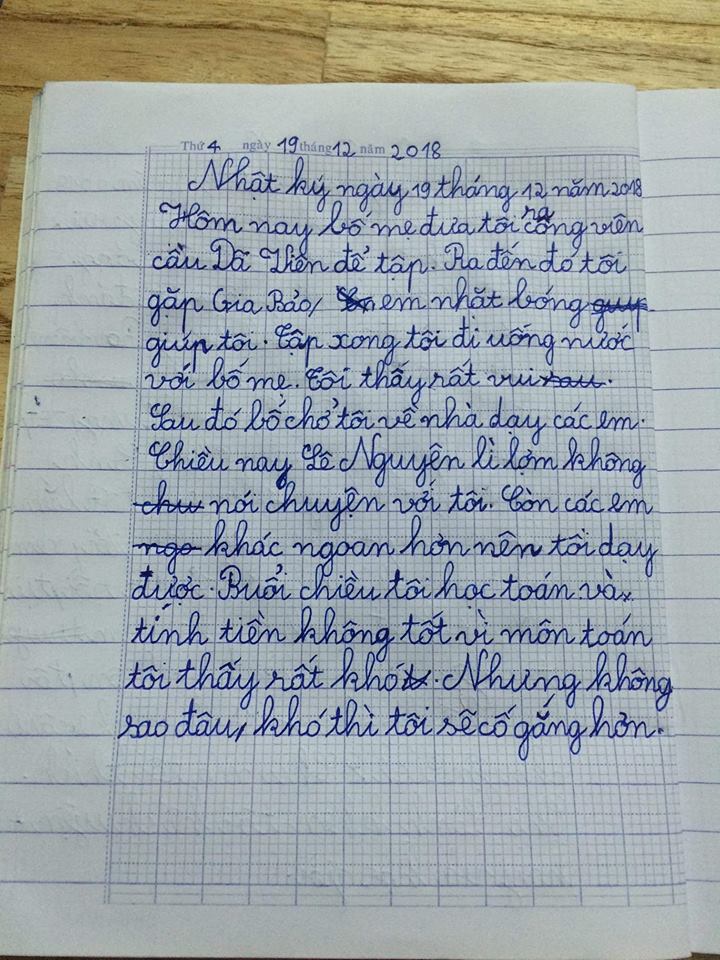 Thứ 4 ngày 19 tháng 12 năm 2018
Nhật ký ngày 19 tháng 12 năm 2018
Hôm nay bố mẹ đưa tôi ra công viên
cầu Dã Viên để tập. Ra đến đó tôi
gặp Gia Bảo, em nhặt bóng
giúp tôi. Tập xong tôi đi uống nước
với bố mẹ. Tôi thấy rất vui.
Sau đó bố chở tôi về nhà dạy các em.
Chiều nay Lê Nguyên lì lợm không
nói chuyện với tôi. Còn các em
khác ngoan hơn nên tôi dạy
được. Buổi chiều tôi học toán và
tính tiền không tốt vì môn toán
tôi thấy rất khó. Nhưng không
sao đâu, khó thì tôi sẽ cố gắng hơn.